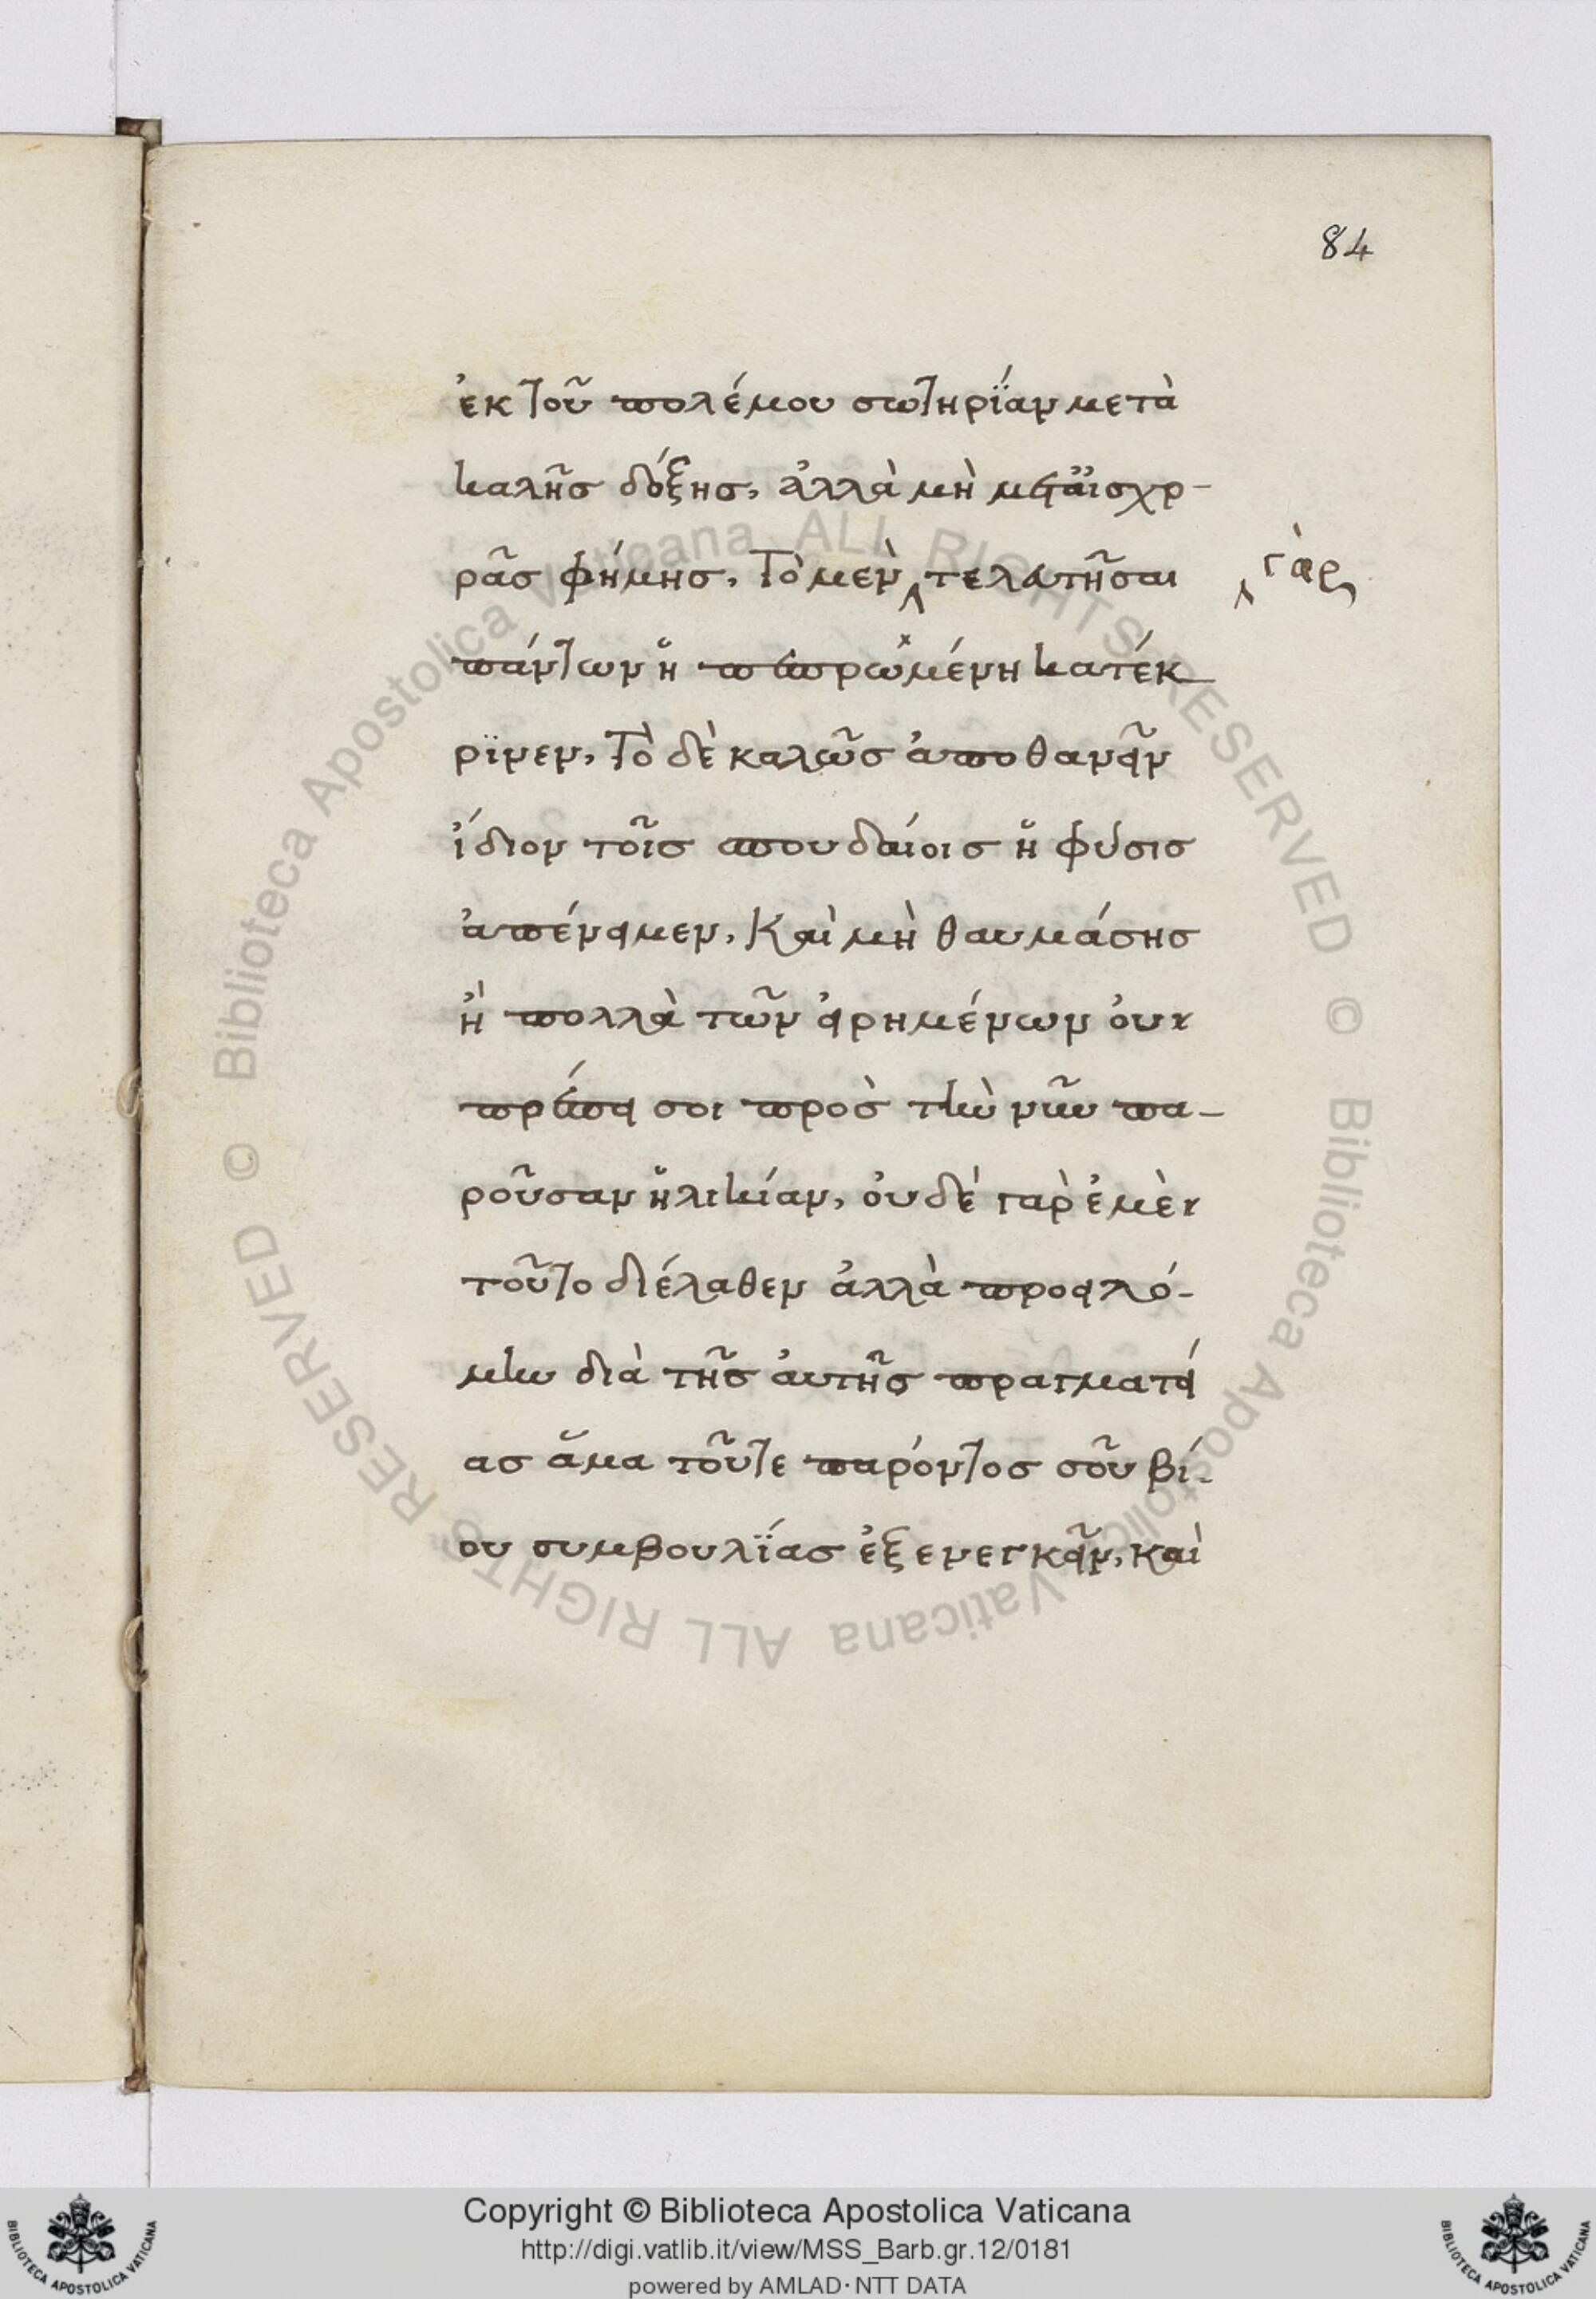 84
ἐκ τοῦ πολέμου σωτηρΐαν μετὰ
καλῆς δόξης, ἀλλὰ μὴ μεταἰσχρ-
ρᾶς φήμης, Τὸ μὲν ‸ τελευτῆσαι ‸ γὰρ
πάντων ἡ πεπρωμένη κατέκ
ρϊνεν, Τὸ δὲ καλῶς ἀποθανεῖν
ἴδιον τοῖς σπουδαίοις ἡ φύσις
ἀπένειμεν, Καὶ μὴ θαυμάσης
ἢ πολλὰ τῶν εἰρημένων οὐκ
πρέπει σοι πρὸς τὴν νῦν πα-
ροῦσαν ἡλικίαν, οὐδὲ γὰρ ἐμὲ
τοῦτο διέλαθεν ἀλλὰ προειλό-
μην διὰ τῆς αὐτῆς πραγματεί
ας ἅμα τοῦτε παρόντος σοῦ βί-
ου συμβουλΐας ἐξενεγκεῖν, καὶ
Copyright © Biblioteca Apostolica Vaticana
http://digi.vatlib.it/view/MSS_Barb.gr.12/0181
powered by AMLAD·NTT DATA
© Biblioteca Apostolica Vaticana ALL RIGHTS RESERVED © Biblioteca Apostolica Vaticana ALL RIGHTS RESERVED
BIBLIOTECA APOSTOLICA VATICANA
BIBLIOTECA APOSTOLICA VATICANA